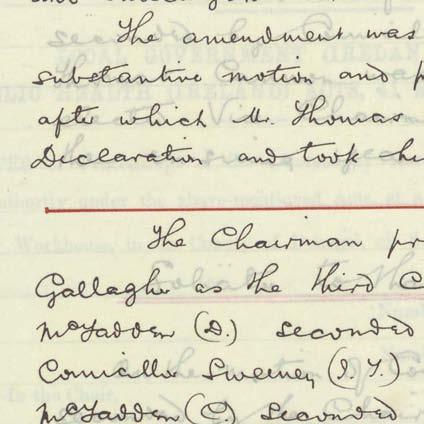 The amendment was
substantive motion and p
after which Mr. Thomas
Declaration and took he
The Chairman pr
Gallagher as the third C
McFadden (D.) seconded
Councillor Sweeney (J. F.)
McFadden (C.) seconded